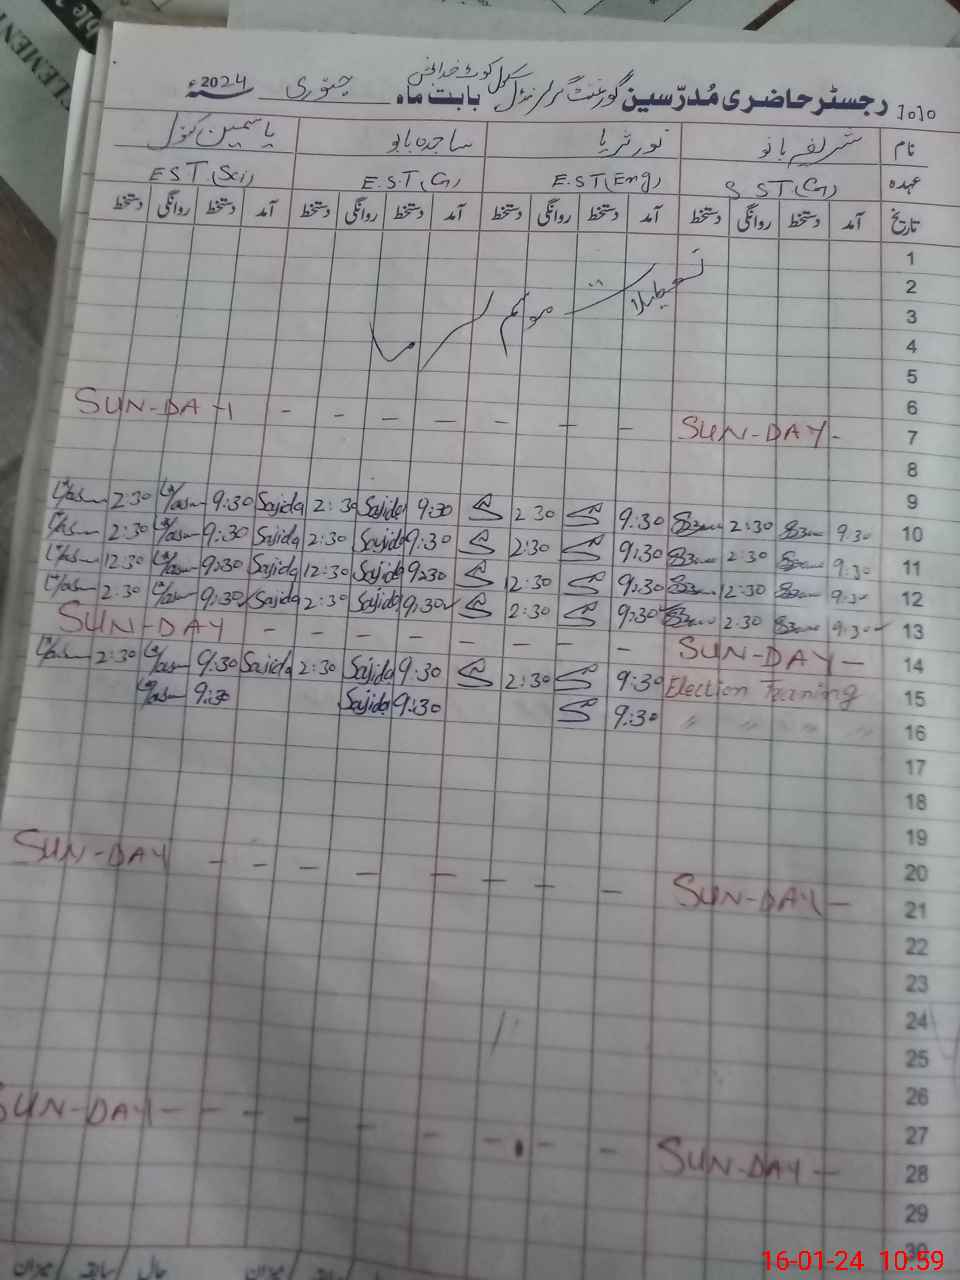 رجسٹر حاضری مُدرّسین گورنمنٹ گرلز مڈل سکول کوٹ خدا بخش بابت ماہ جنوری 2024ء
نام شریفہ بانو نور ثریا ساجدہ بانو یاسمین کنول
عہدہ S ST(G) E.S T(Eng) E.S.T(G) E S T(Sci)
تاریخ آمد دستخط روانگی دستخط آمد دستخط روانگی دستخط آمد دستخط روانگی دستخط آمد دستخط روانگی دستخط
1
2
تعطیلات موسم سرما
3
4
5
6
SUN-DAY - - - - - - - SUN-DAY- 7
8
9
2:30 9:30 Sajida 2:30 Sajida 9:30 2:30 9:30 2:30 9:30 10
2:30 9:30 Sajida 2:30 Sajida 9:30 2:30 9:30 2:30 9:30 11
12:30 9:30 Sajida 12:30 Sajida 9:30 12:30 9:30 12:30 9:30 12
2:30 9:30 Sajida 2:30 Sajida 9:30 2:30 9:30 2:30 9:30 13
SUN-DAY - - - - - - - - SUN-DAY- 14
2:30 9:30 Sajida 2:30 Sajida 9:30 2:30 9:30 Election Traning 15
9:30 Sajida 9:30 9:30 " " " " 16
17
18
19
20
SUN-DAY - - - - - - - - SUN-DAY- 21
22
23
24
25
26
27
SUN-DAY- - - - - - - - - SUN-DAY- 28
29
30
16-01-24 10:59